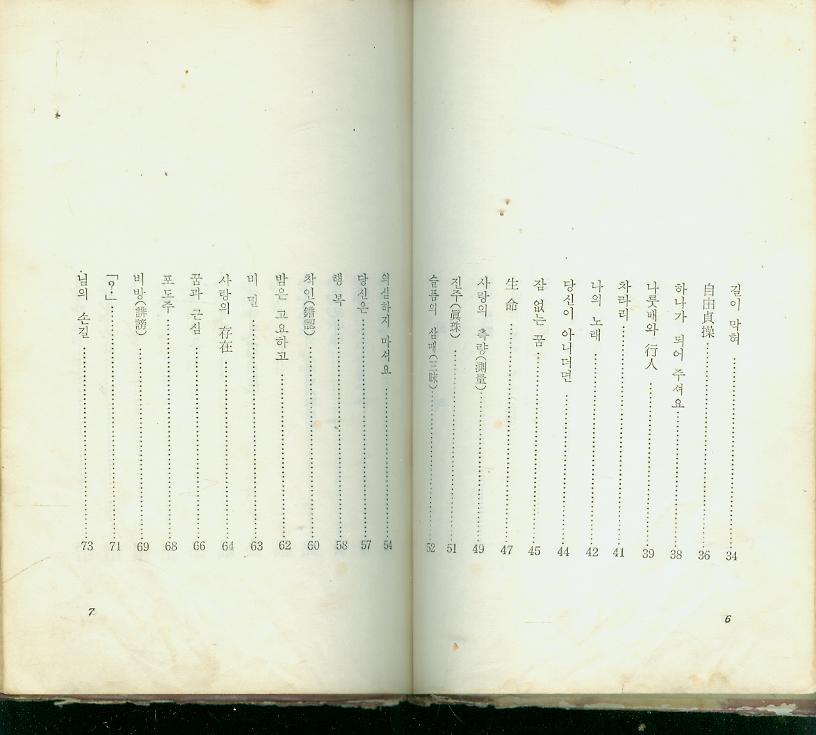 길이 막혀 34
自由貞操 36
하나가 되어 주셔요 38
나룻배와 行人 39
차라리 41
나의 노래 42
당신이 아니더면 44
잠 없는 꿈 45
生命 47
사랑의 측량(測量) 49
진주(眞珠) 51
슬픔의 삼매(三昧) 52
6
의심하지 마셔요 54
당신은 57
행복 58
착인(錯認) 60
밤은 고요하고 62
비밀 63
사랑의 存在 64
꿈과 근심 66
포도주 68
비방(誹謗) 69
「?」 71
님의 손길 73
7